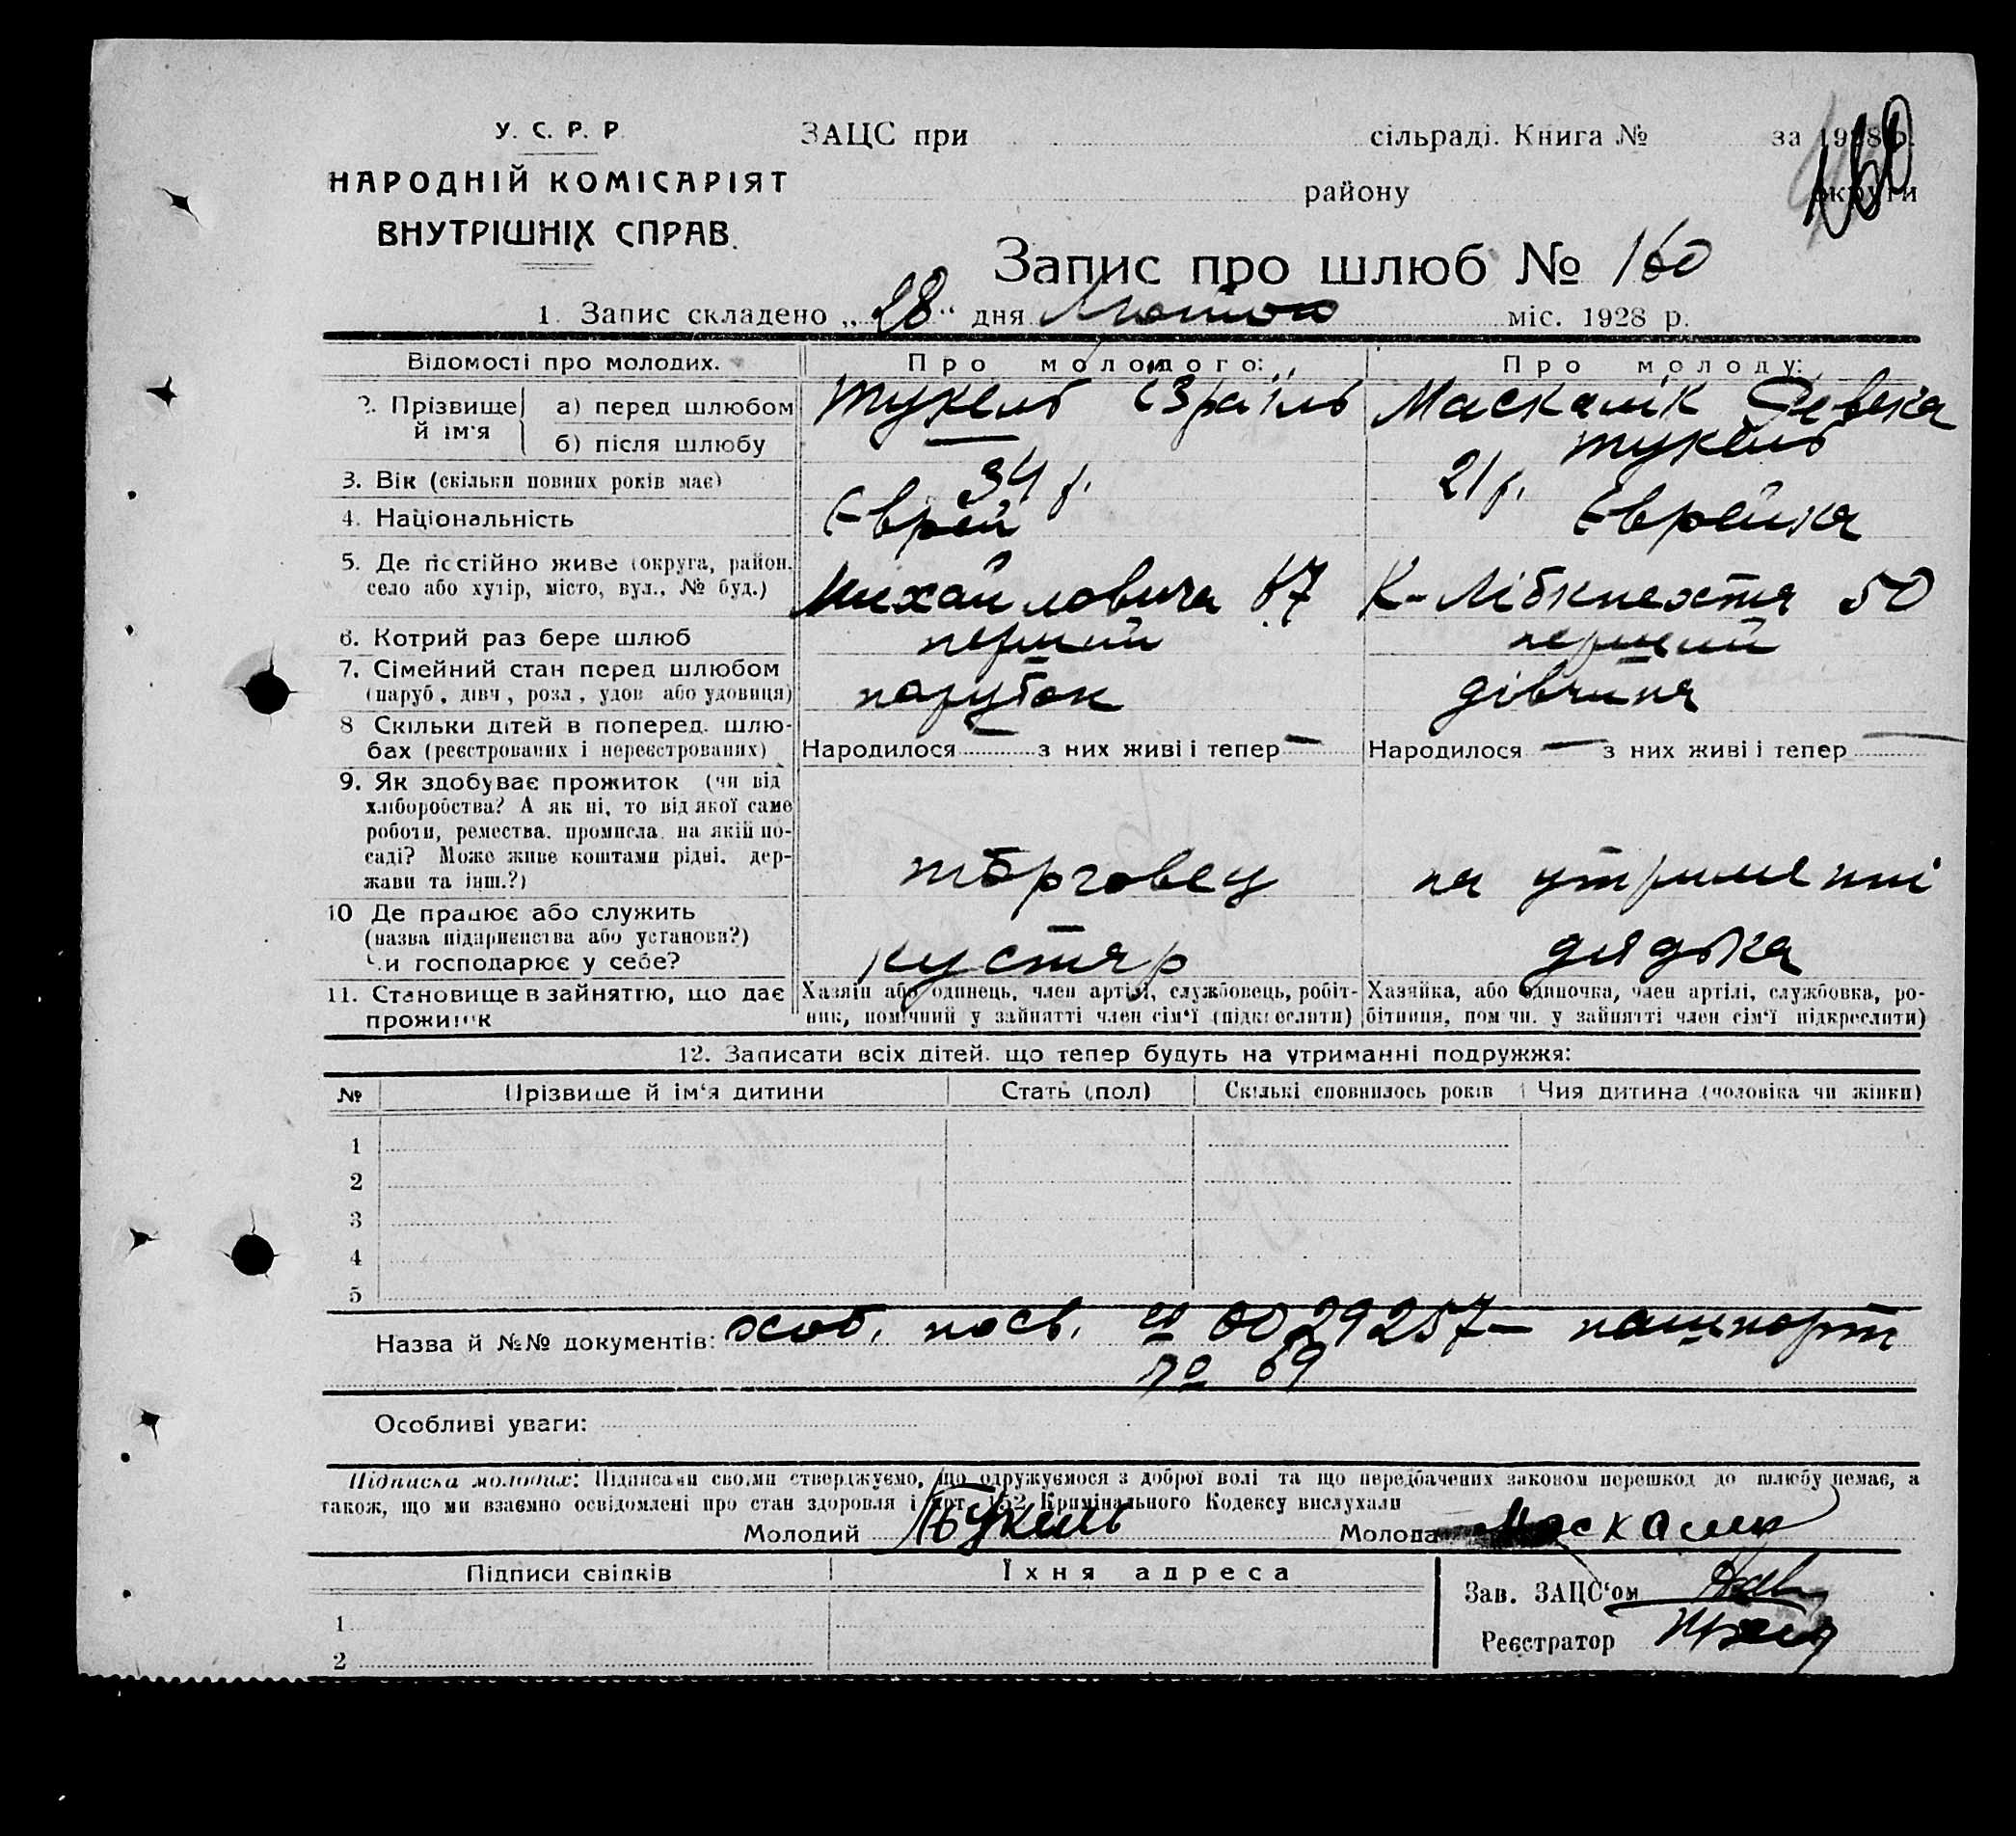 160
У. С. Р. Р.
НАРОДНІЙ КОМІСАРІЯТ
ВНУТРІШНІХ СПРАВ.
ЗАЦС при сільраді. Книга № за 1928 р.
району округи
Запис про шлюб № 160
1. Запис складено „28“ дня Лютого міс. 1928 р.
Відомості про молодих. Про молодого: Про молоду:
2. Прізвище й ім'я а) перед шлюбом Тукель Ізраїль Маскалік Ревека
б) після шлюбу — Тукель
3. Вік (скільки повних років має) 34 р. 21 р.
4. Національність Єврей Єврейка
5. Де постійно живе (округа, район, Михайловича 67 К-Лібкнехта 50
село або хутір, місто, вул., № буд.)
6. Котрий раз бере шлюб перший перший
7. Сімейний стан перед шлюбом парубок дівчина
(паруб, дівч, розл, удов або удовиця)
8 Скільки дітей в поперед. шлю-
бах (реєстрованих і нереєстрованих) Народилося — з них живі і тепер — Народилося — з них живі і тепер —
9. Як здобуває прожиток (чи від
хліборобства? А як ні, то від якої саме
роботи, ремества, промисла, на якій по-
саді? Може живе коштами рідні, дер- торговец на утриманні
жави та інш.?)
10 Де працює або служить
(назва підприємства або установи?) кустяр дядька
Чи господарює у себе?
11. Становище в зайняттю, що дає Хазяїн або одинець, член артілі, службовець, робіт- Хазяйка, або одиночка, член артілі, службовка, ро-
прожиток ник, помічний у зайнятті член сім'ї (підкреслити) бітниця, пом чн. у зайнятті член сім'ї підкреслити)
12. Записати всіх дітей, що тепер будуть на утриманні подружжя:
№ Прізвище й ім'я дитини Стать (пол) Скількі сповнилось років Чия дитина (чоловіка чи жінки)
1
2
3
4
5
Назва й №№ документів: особ. посв. 0029257 — пашпорт
69
Особливі уваги:
Підписка молодих: Підписами своїми стверджуємо, що одружуємося з доброї волі та що передбачених законом перешкод до шлюбу немає, а
також, що ми взаємно освідомлені про стан здоровля і арт. 152 Кримінального Кодексу вислухали
Молодий Тукель Молода Маскалик
Підписи свідків Їхня адреса
Зав. ЗАЦС'ом
1
Реєстратор
2